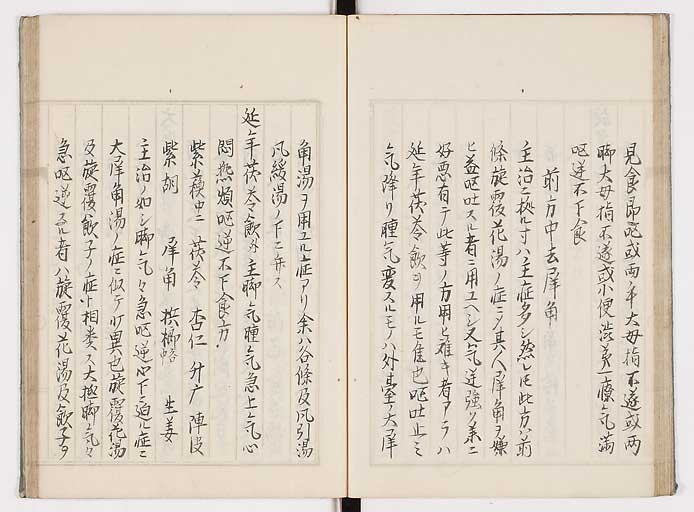 見食昂呕或両手大母指不遂或両
脚大母指不遂或小便渋黄一療気満
呕逆不下食
前方中去犀角
主治ニ拠ル寸ハ主症多シ然レ𪜈此方ハ前
條旋覆花湯ノ症ニシ其人犀角ヲ嫌
ヒ益呕吐スル者ニ用ユヘシ又気逆強ク薬ニ
好悪有テ此等ノ方用ヒ難キ者アラハ
延年茯苓飲ヲ用ルモ佳也呕吐止ミ
気降リ腫気変スルモノハ外臺ノ大犀
角湯ヲ用ユル症アリ余ハ谷條及風引湯
風緩湯ノ下ニ弁ス
延年茯苓飲外主脚気腫気急上気心
悶熱煩呕逆不下食方
紫蘇 茯苓 杏仁 升广 陳皮
紫胡 犀角 梹榔 生姜
主治ノ如シ脚気々急呕逆心下ニ迫ル症ニ
大犀角湯ノ症ニ似テ小異也旋覆花湯
及旋覆飲子ノ症ト相类ス大極脚気々
急呕逆スル者ハ旋覆花湯及飲子ヲ